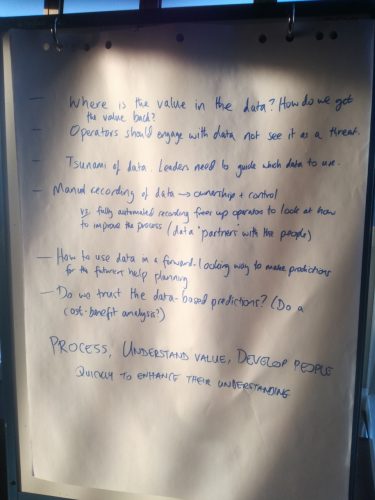 - Where is the value in the data? How do we get
the value back?
- Operators should engage with data not see it as a threat.
- Tsunami of data. Leaders need to guide which data to use.
- Manual recording of data → ownership + control
vs. fully automated recording frees up operators to look at how
to improve the process (data 'partners with the people)
- How to use data in a forward-looking way to make predictions
for the future & help planning
- Do we trust the data-based predictions? (Do a
cost-benefit analysis?)
PROCESS, UNDERSTAND VALUE, DEVELOP PEOPLE
QUICKLY TO ENHANCE THEIR UNDERSTANDING